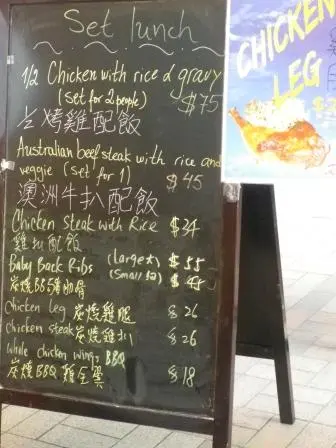 Set lunch
1/2 Chicken with rice & gravy
(set for 2 people) $75
½ 烤雞配飯
Australian beef steak with rice and
veggie (set for 1) $45
澳洲牛扒配飯
Chicken steak with Rice $34
雞扒配飯
Baby Back Ribs (large大) $55
炭燒BB豬肋骨 (small細) $45
chicken leg 炭燒雞腿 $26
chicken steak 炭燒雞扒 $26
whole chicken wings BBQ
炭燒BBQ雞全翼 $18
CHICKEN
LEG